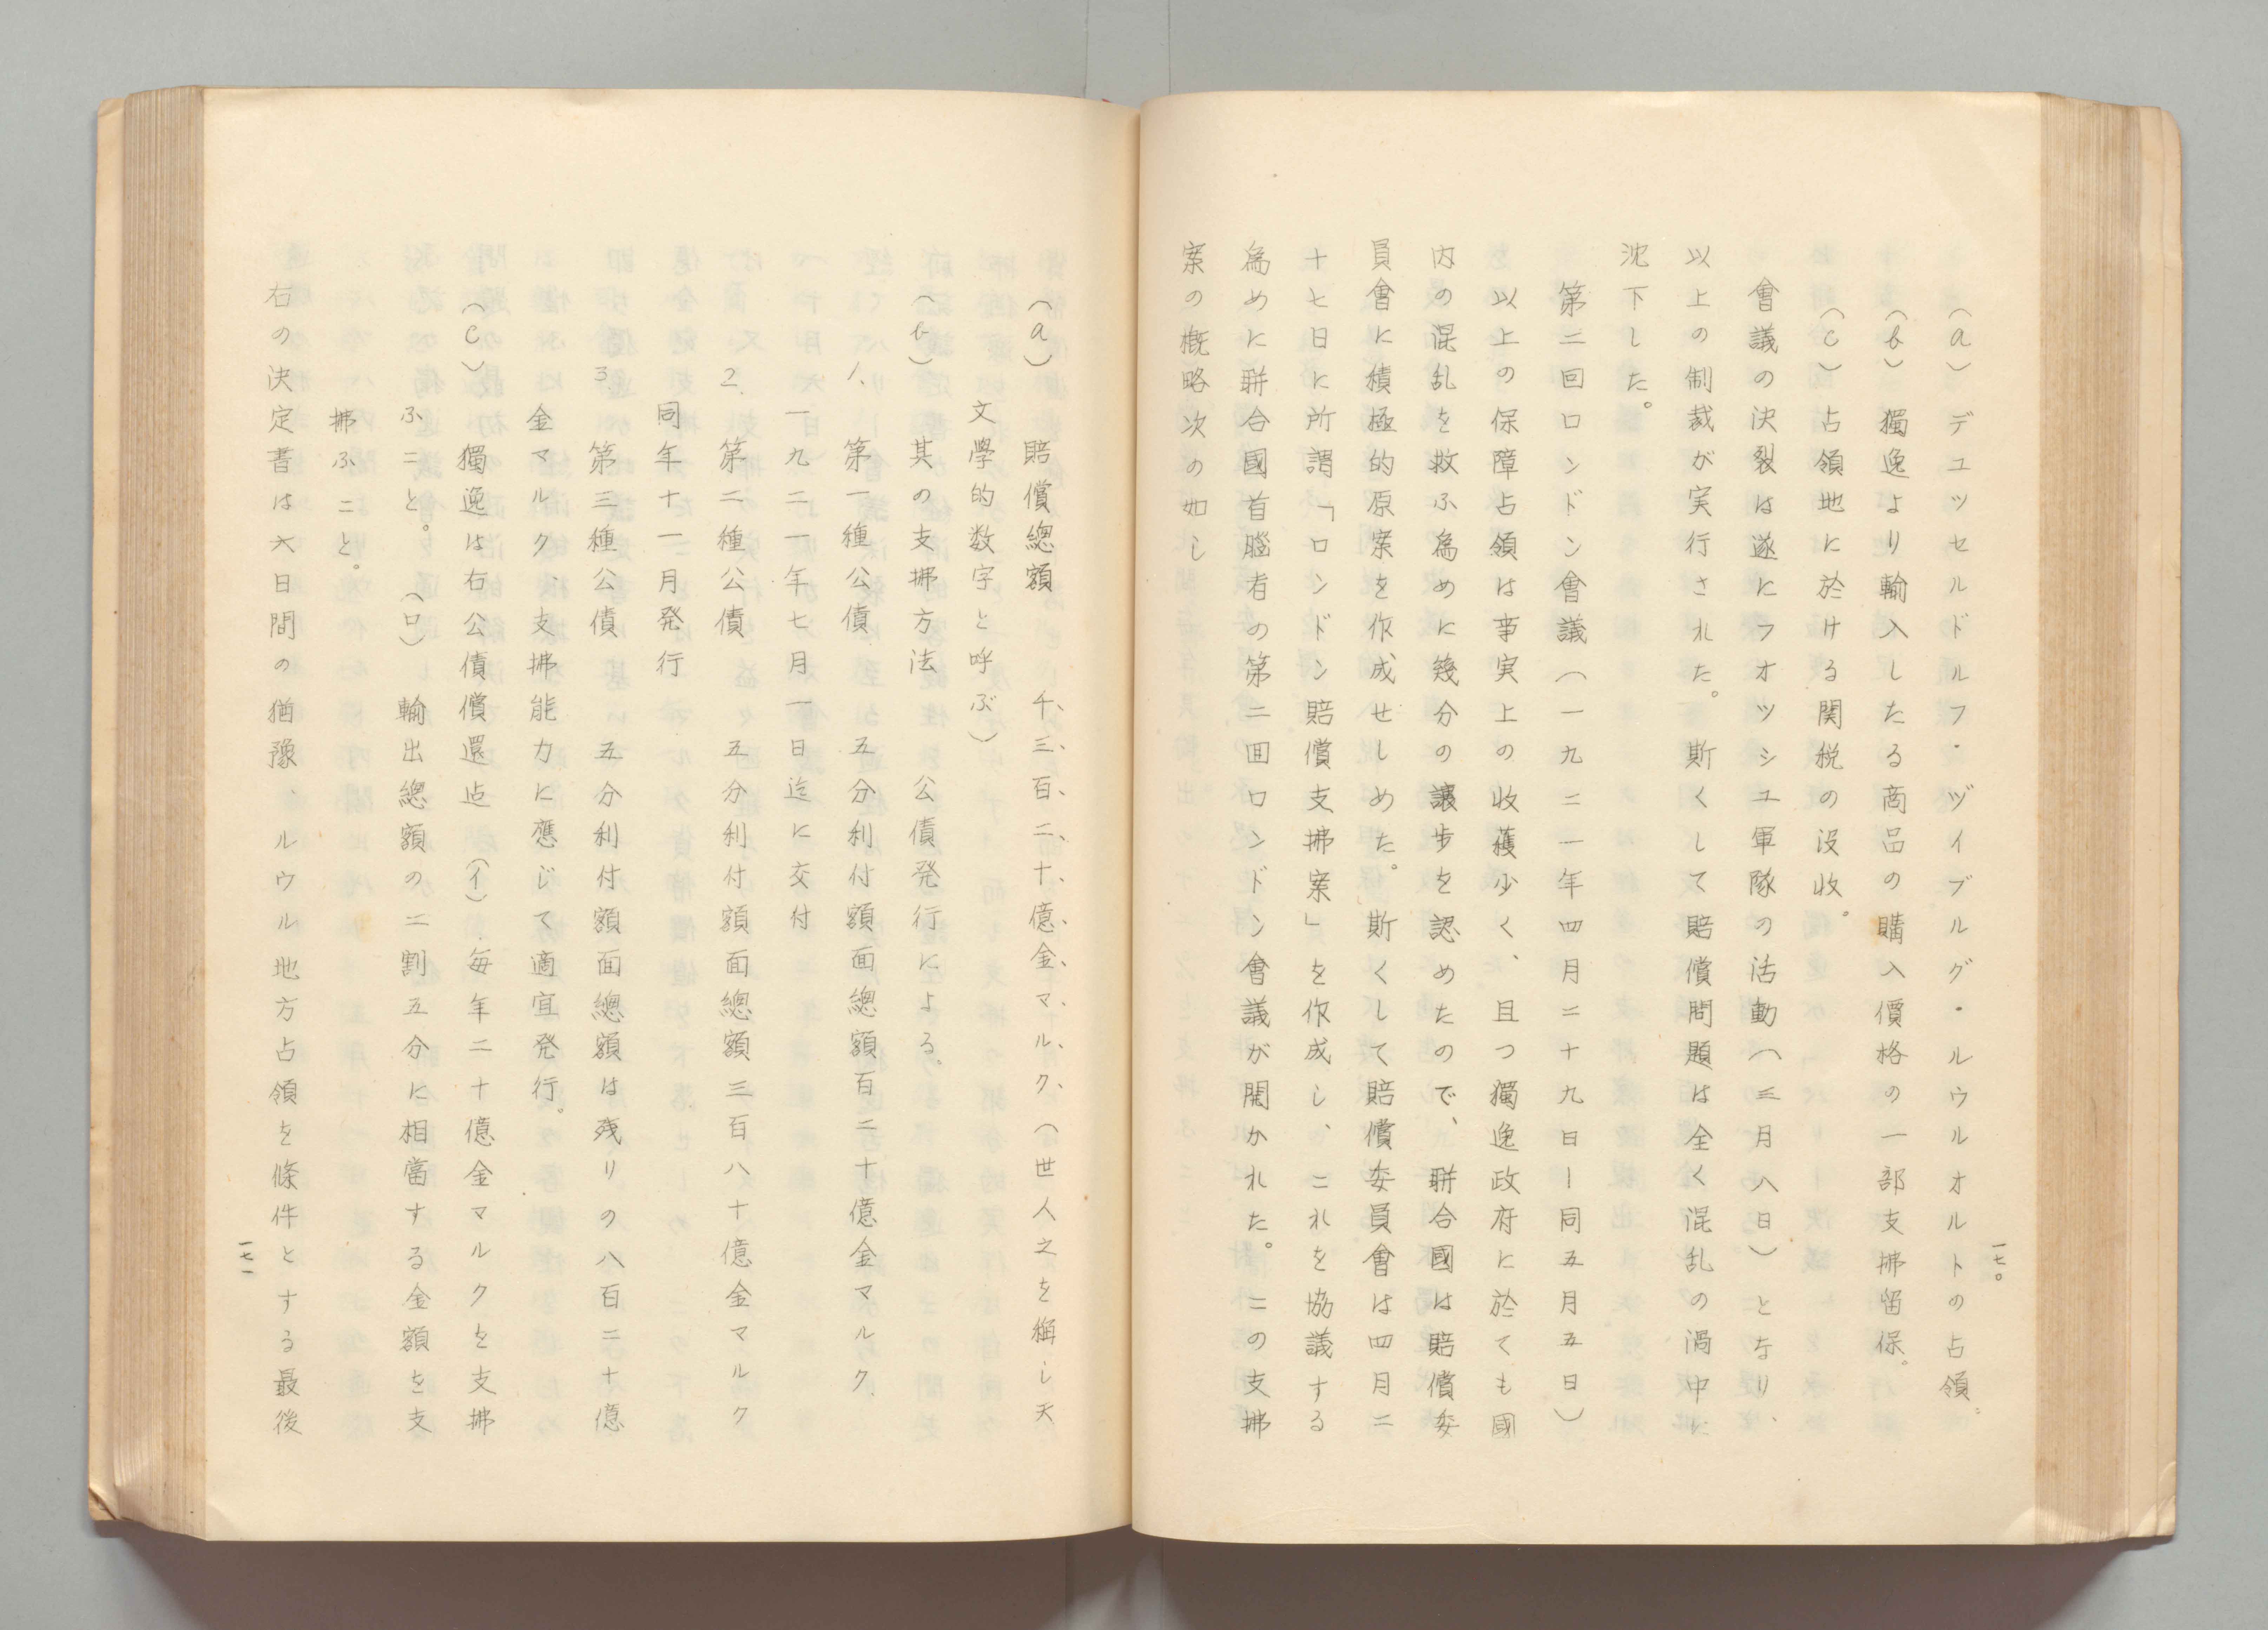 一七〇
（a）デユツセルドルフ・ヅイブルグ・ルウルオルトの占領。
（b）獨逸より輸入したる商品の購入價格の一部支拂留保。
（c）占領地に於ける関税の没收。
會議の決裂は遂にフオツシユ軍隊の活動（三月八日）となり、
以上の制裁が実行された。斯くして賠償問題は全く混乱の渦中に
沈下した。
第二回ロンドン會議（一九二一年四月二十九日ー同五月五日）
以上の保障占領は事実上の收獲少く、且つ獨逸政府に於ても國
内の混乱を救ふ為めに幾分の讓歩を認めたので、聯合國は賠償委
員會に積極的原案を作成せしめた。斯くして賠償委員會は四月二
十七日に所謂「ロンドン賠償支拂案」を作成し、これを協議する
為めに聯合國首腦者の第二回ロンドン會議が開かれた。この支拂
案の概略次の如し
（a）賠償總額　千三百二十億金マルク（世人之を稱し天
文學的数字と呼ぶ）
（b）其の支拂方法　公債発行による。
1、第一種公債　五分利付額面總額百二十億金マルク
一九二一年七月一日迄に交付
2、第二種公債　五分利付額面總額三百八十億金マルク
同年十一月発行
3、第三種公債　五分利付額面總額は残りの八百二十億
金マルク、支拂能力に應じて適宜発行。
（c）獨逸は右公債償還迠（イ）毎年二十億金マルクを支拂
ふこと。（ロ）輸出總額の二割五分に相當する金額を支
拂ふこと。
右の決定書は六日間の猶豫、ルウル地方占領を條件とする最後
一七一